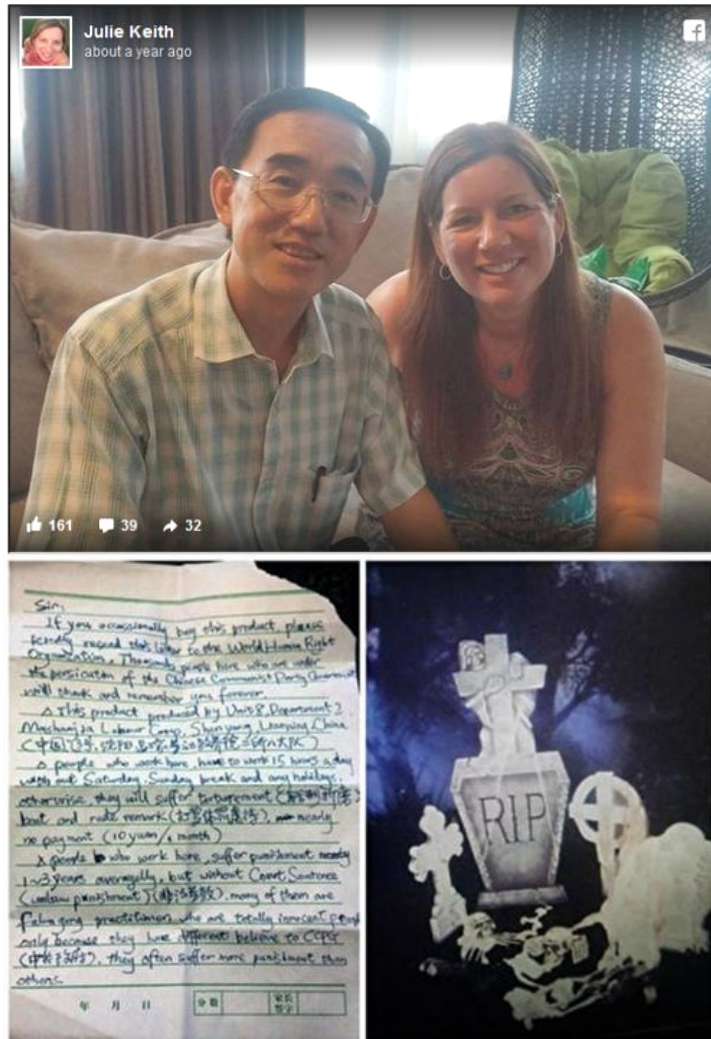 Julie Keith
about a year ago
f
161 39 32
Sir:
If you occassionally buy this product, please
kindly resend this letter to the World Human Right
Organization. Thousands people here who are under
the persicution of the Chinese Communist Party Government
will thank and remember you forever.
This product produced by Unit 8, Department 2,
Labour Camp, Shen yang, Liaoning, China
people who work here, have to work 15 hours a day
with out Saturday, Sunday break and any holidays,
otherwise, they will suffer torturement
beat and rude remark nearly
no payment (10 yuan/1 month)
people who work here, suffer punishment nearly
1~3 years averagelly, but without Court Sentence
(unlaw punishment) (非法劳教), many of them are
practitioner, who are totally innocent people
only because they have different believe to CCPG
they often suffer more punishment than
others.
年 月 日 分数 家长签字
RIP